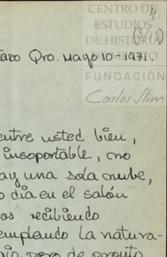 CENTRO DE
ESTUDIOS
DE HISTORIA
FUNDACIÓN
Carlos Slim
Qro. mayo 10-1971.
entre usted bien,
insoportable, no
ay una sola nube,
o dia en el salón
os recibiendo
emplando la natura-
pero de pronto